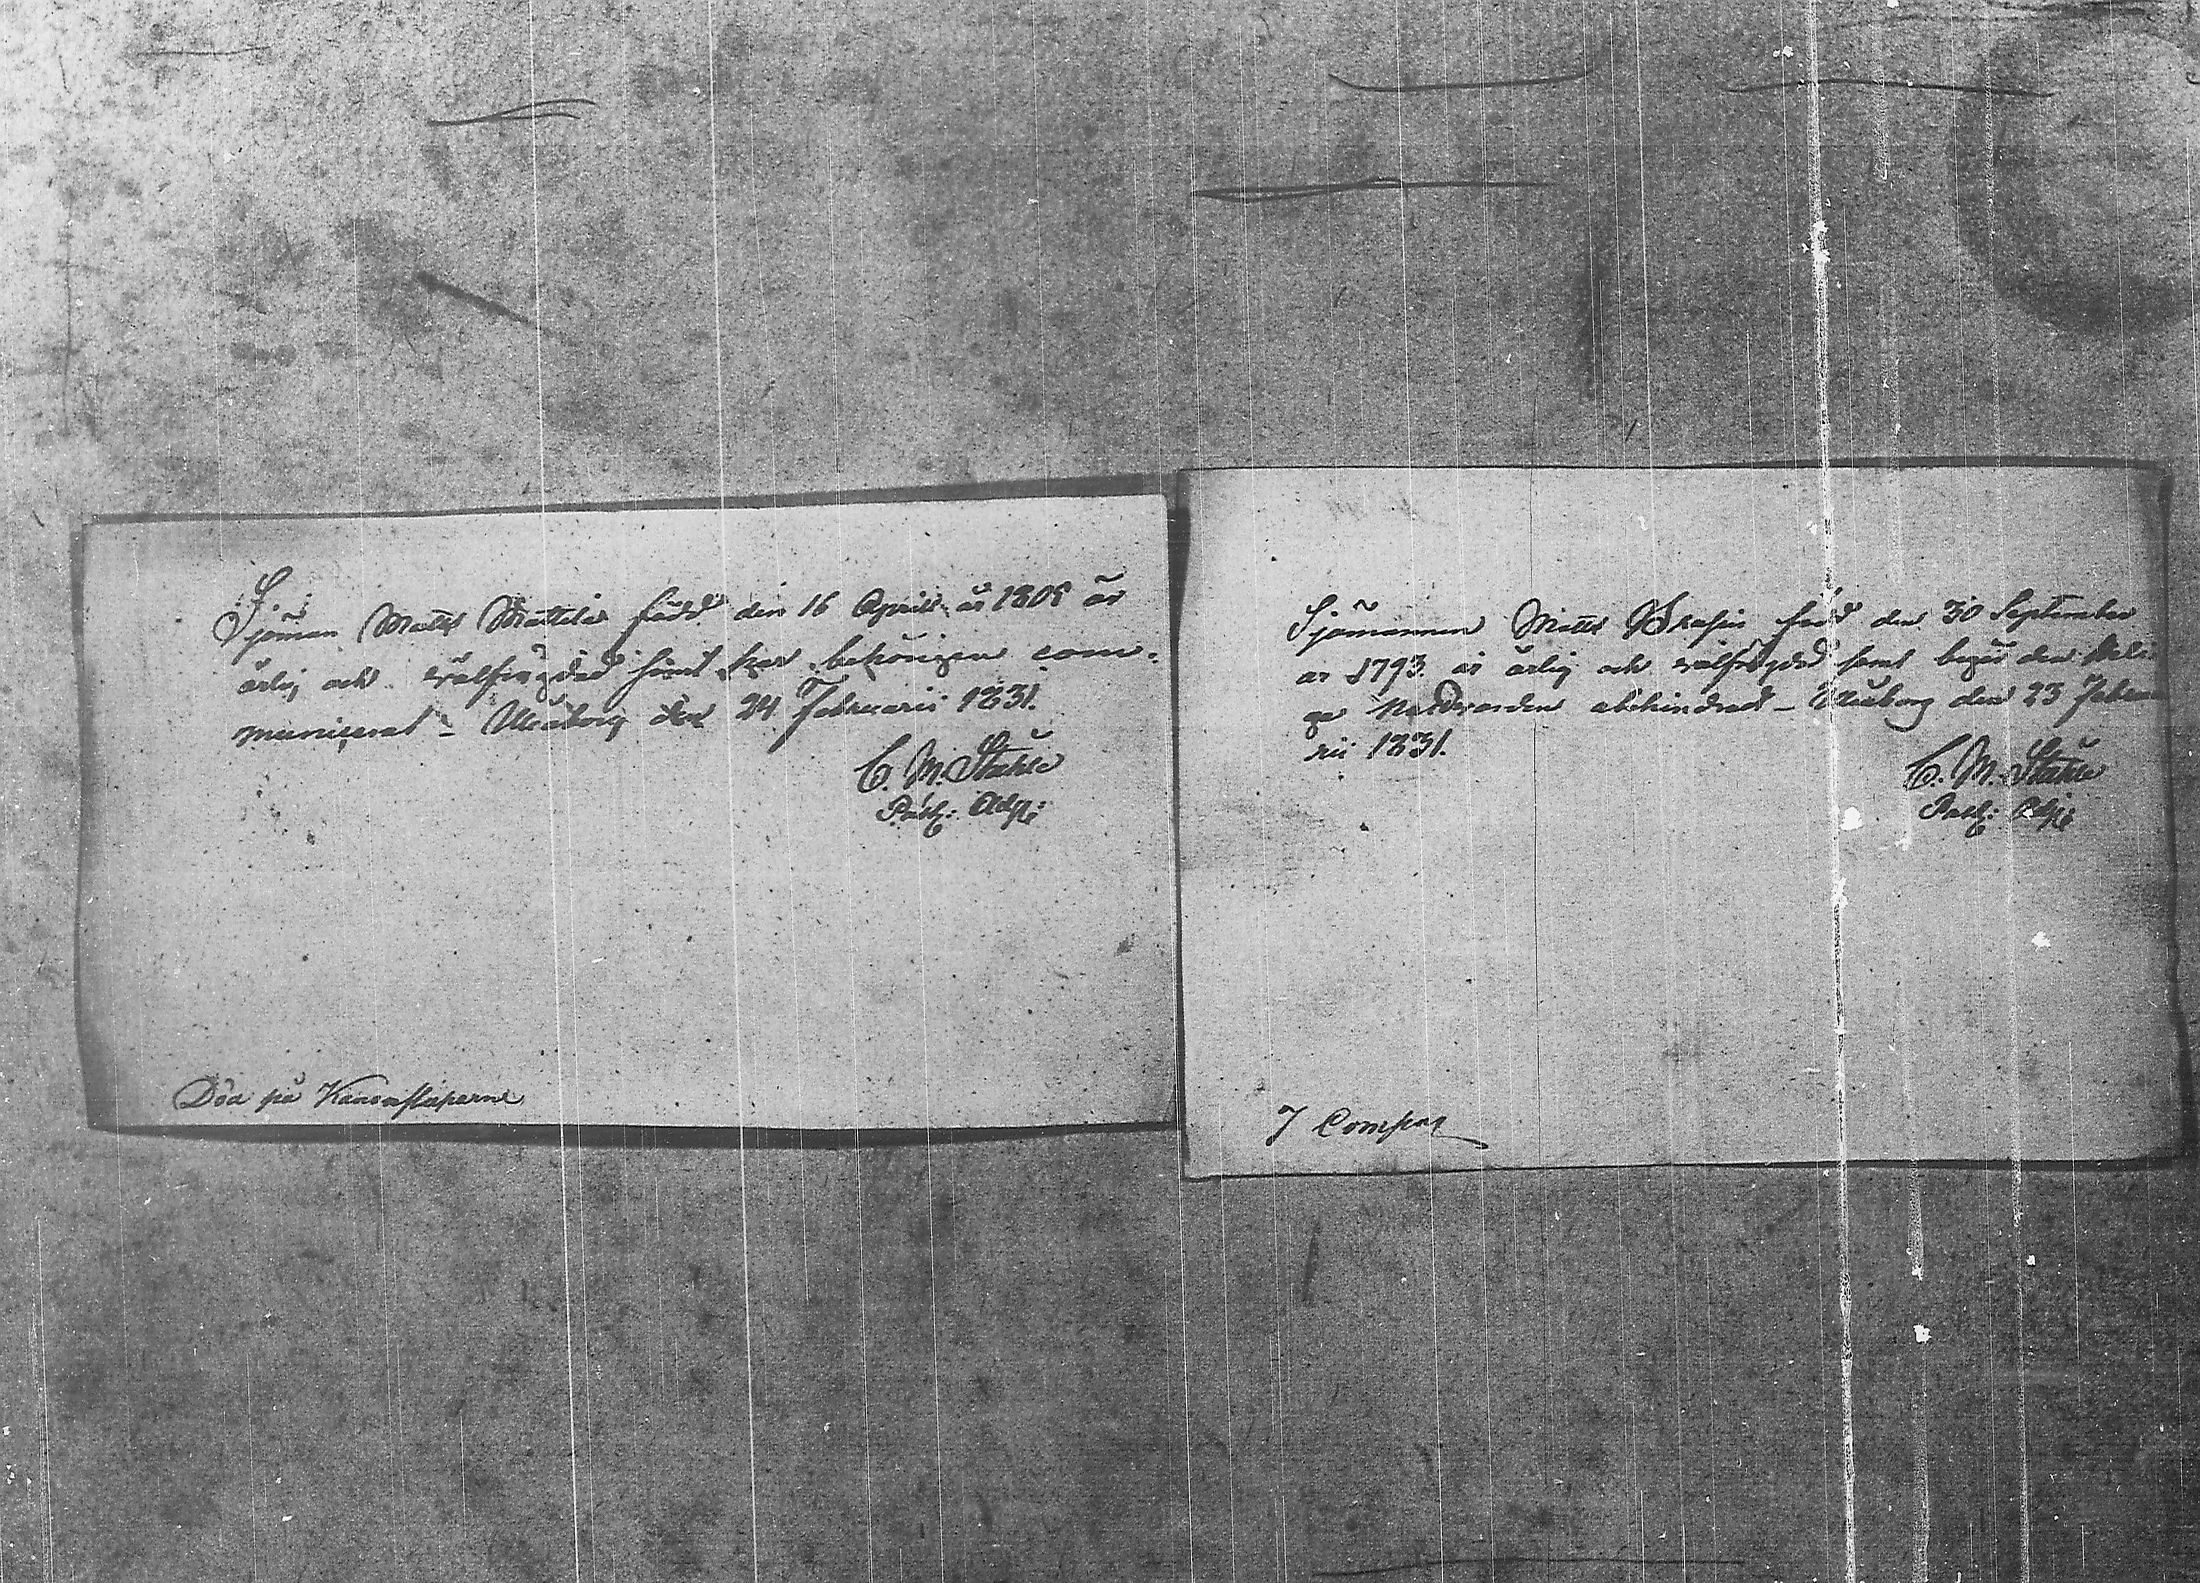 Sjöman Matts Mattila född den 16 Aprill år 1808 är
ärlig och välfrägdad samt har behörigen com-
municerat – Uleåborg den 24 Februarii 1831.
C. M. Ståhle
Past: Adj:
Döa på Kanonslupparne
Sjömannen Matts född den 30 September
år 1793. är ärlig och välfrägdad samt begår den Heli-
ga Nattvarden obehindradt – Uleåborg den 23 Febru
rii 1831.
C. M. Ståhle
Past: Adj:
J Compas